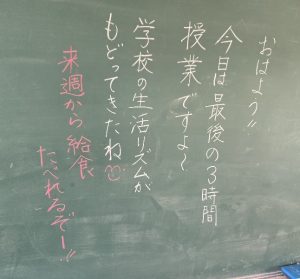 おはよう!!
今日は最後の3時間
授業ですよ～
学校の生活リズムが
もどってきたね
来週から給食
たべれるぞー!!